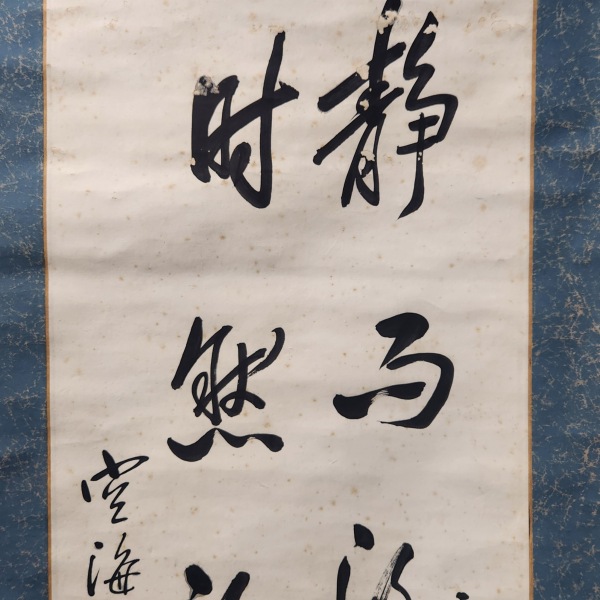 静而
时然
空海